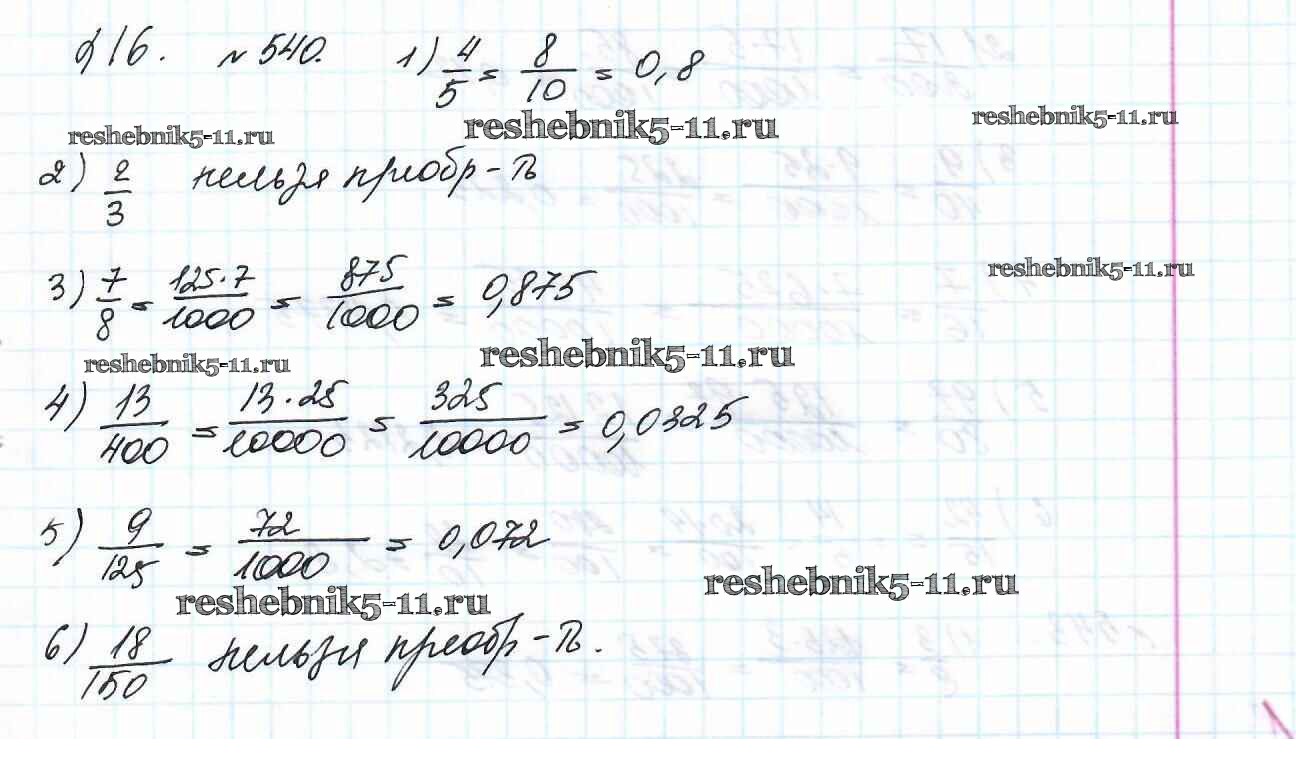 §16. № 540. 1) 4/5 = 8/10 = 0,8
reshebnik5-11.ru reshebnik5-11.ru reshebnik5-11.ru
2) 2/3 нельзя преобр-ть
3) 7/8 = 125·7/1000 = 875/1000 = 0,875
reshebnik5-11.ru
reshebnik5-11.ru reshebnik5-11.ru
4) 13/400 = 13·25/10000 = 325/10000 = 0,0325
5) 9/125 = 72/1000 = 0,072
reshebnik5-11.ru reshebnik5-11.ru
6) 18/150 нельзя преобр-ть.